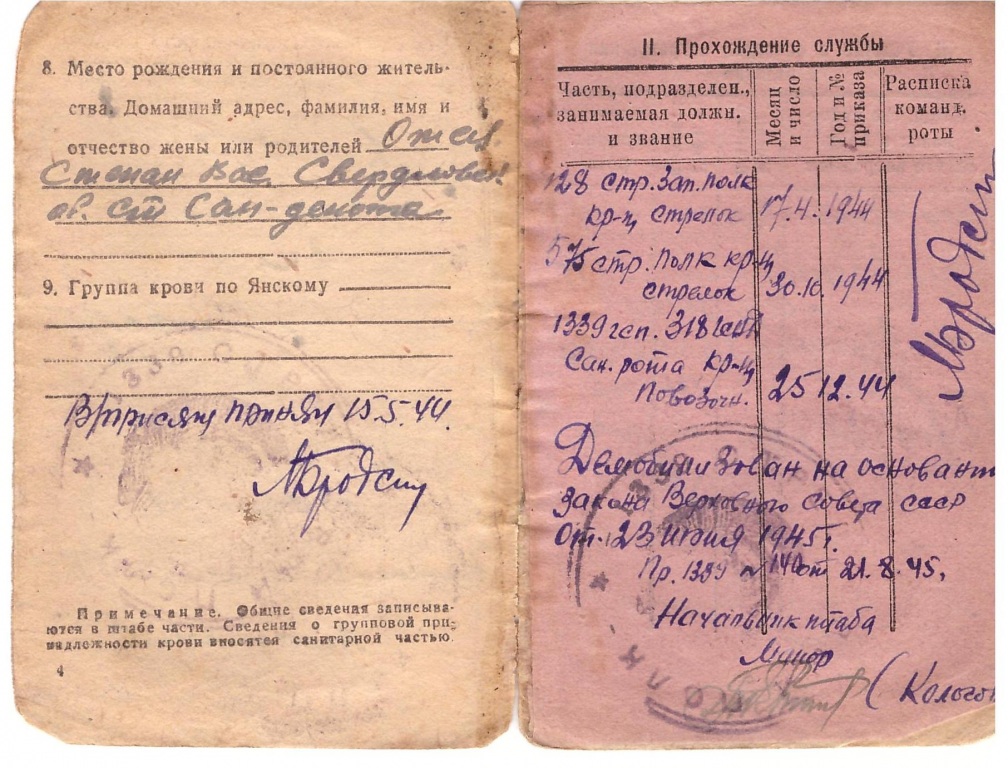 8. Место рождения и постоянного житель-
ства. Домашний адрес, фамилия, имя и
отчество жены или родителей
Степан Вас. Свердловск.
ст Сан-
9. Группа крови по Янскому
В/присягу принял 15.5.44.
МБродский
Примечание. Общие сведения записыва-
ются в штабе части. Сведения о групповой при-
надлежности крови вносятся санитарной частью.
4
II. Прохождение службы
Часть, подразделен.,
занимаемая должн.
и звание
Месяц
и число
Год и №
приказа
Расписка
команд.
роты
128 стр. зап. полк
кр-ц стрелок 17.4. 1944
575 стр. полк кр-ц
стрелок 30.10. 1944
1339 гсп. 318 гсд
Сан. рота кр-ц
Повозочн. 25 12. 44
МБродский
Демобилизован на основан
закона Верховного Совета СССР
от 23 июня 1945г.
Пр. 1339 № 140 от 21. 8. 45.
Начальник штаба
Майор
(Колосов